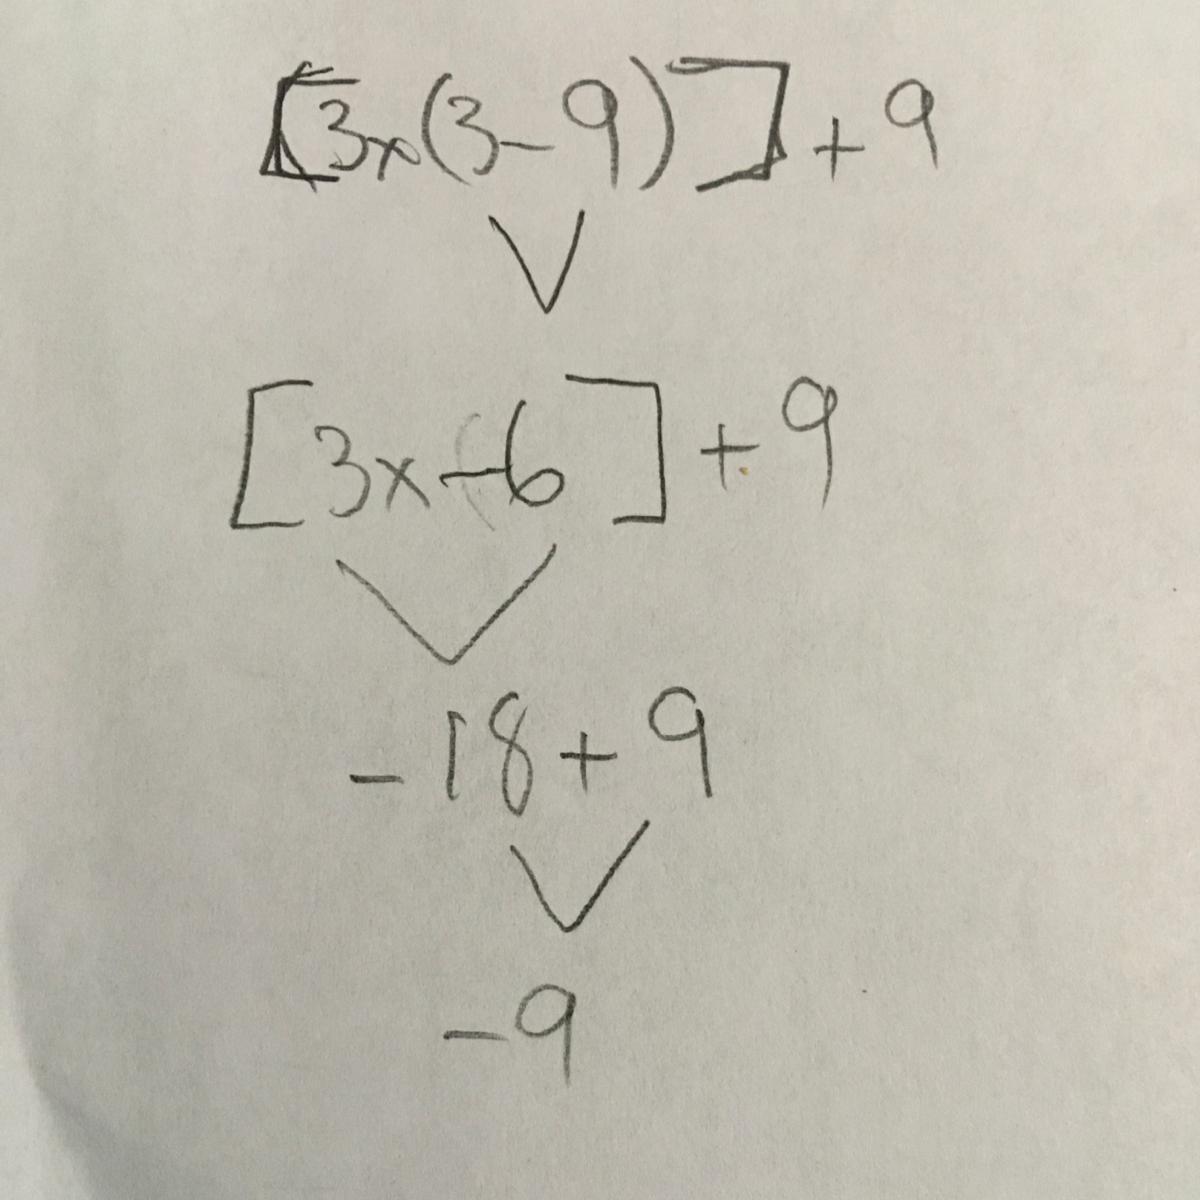 [3x(3-9)]+9
[3x-6]+9
-18+9
-9